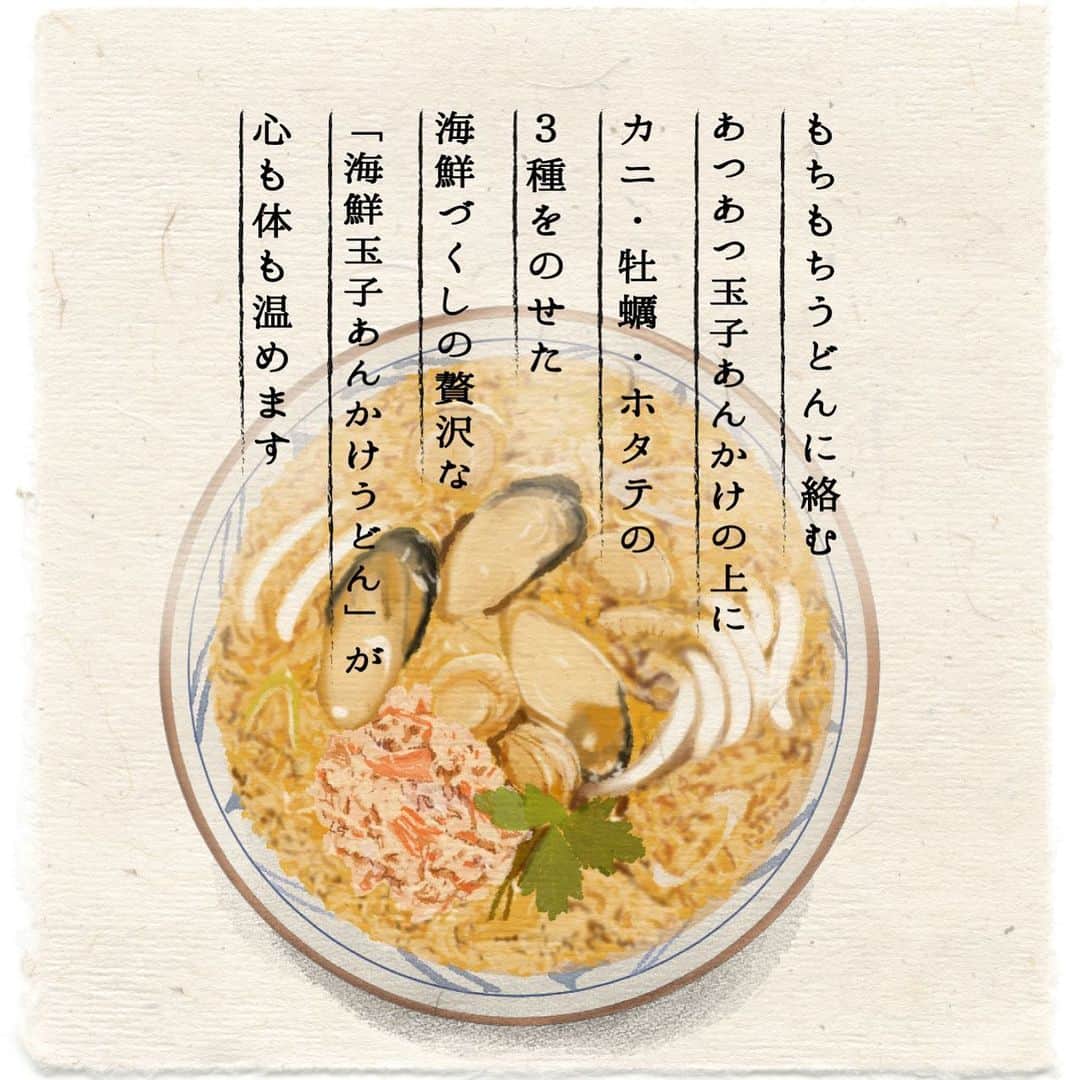 もちもちうどんに絡む
あつあつ玉子あんかけの上に
カニ・牡蠣・ホタテの
3種をのせた
海鮮づくしの贅沢な
「海鮮玉子あんかけうどん」が
心も体も温めます